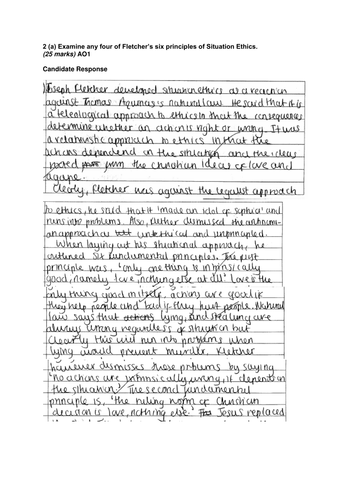 2 (a) Examine any four of Fletcher's six principles of Situation Ethics.
(25 marks) AO1
Candidate Response
Joseph Fletcher developed situation ethics as a reaction
against Thomas Aquinas's natural law. He said that it is
a teleological approach to ethics in that the consequences
determine whether an action is right or wrong. It was
a relativistic approach to ethics in that the
actions depended on the situation and the ideas
from the christian ideas of love and
agape.
Clearly, Fletcher was against the legalist approach
to ethics, he said that it 'made an idol of sophia' and
runs into problems. Also, Fletcher dismissed the antinomi-
an approach as unethical and unprincipled.
When laying out his situational approach, he
outlined six fundamental principles. The first
principle was, 'only one thing is intrinsically
good, namely love, nothing else at all'. Love is the
only thing good in itself, actions are good if
they help people and bad if they hurt people. Natural
law says that lying, and stealing are
always wrong regardless of situation but
clearly this will run into problems when
lying would prevent murder. Fletcher
however dismisses these problems by saying
'no actions are intrinsically wrong, it depends on
the situation'. The second fundamental
principle is, 'the ruling norm of Christian
decision is love, nothing else'. Jesus replaced